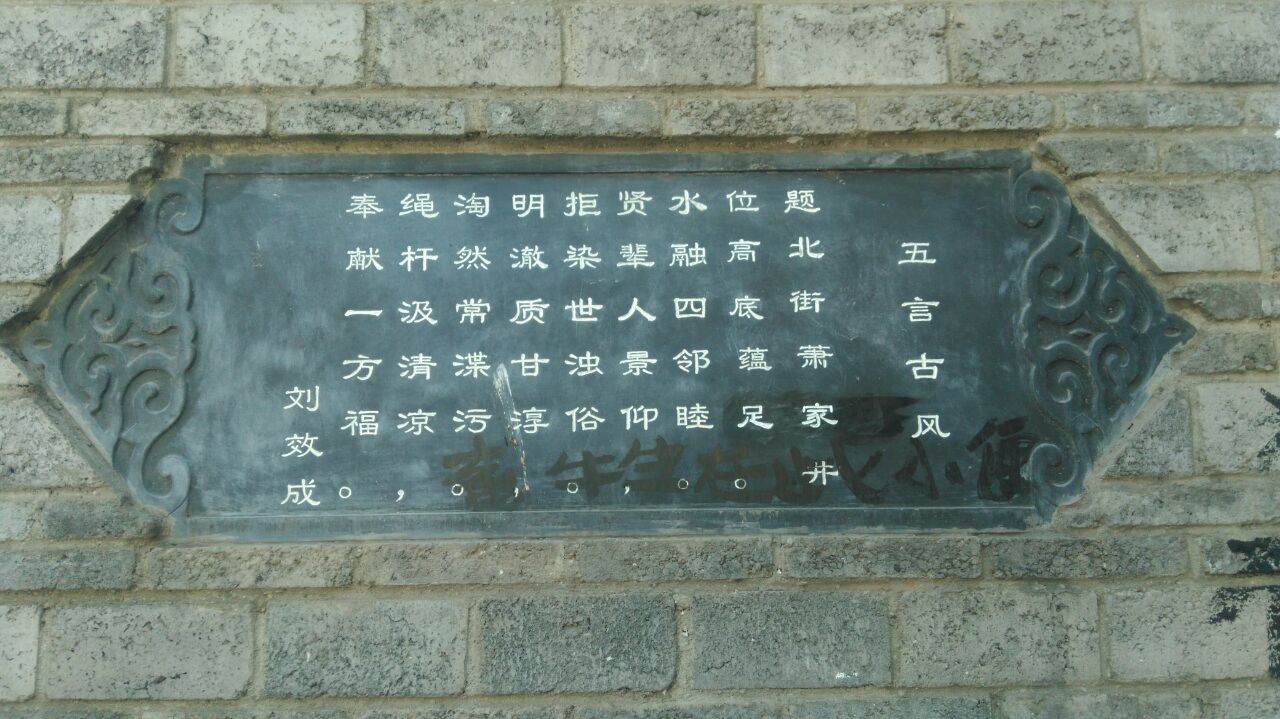 五言古风
题北街萧家井
位高底蕴足。
水融四邻睦。
贤辈人景仰，
拒染世浊俗。
明澈质甘淳，
淘然常渫污。
绳杆汲清凉，
奉献一方福。
刘效成